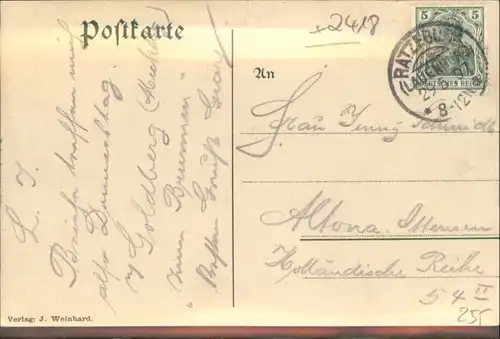 Postkarte
+2418
5
5
DEUTSCHES REICH
RATZEBURG
8-12N
An
Frau Jenny Schmidt
Altona. Ottensen
Holländische Reihe
54 II
255
L. J.
Briefe treffen mich
also Donnerstag
Goldberg
"zum Brunnen"
Besten Gruß
Verlag: J. Weinhard.